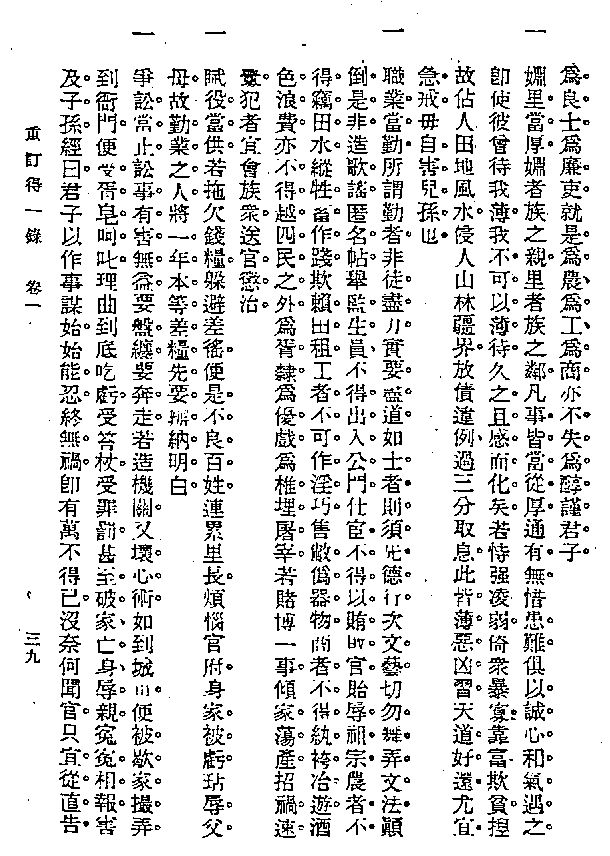 為良士為廉吏就是為農為工為商亦不失為醇謹君子
一 婣里當厚婣者族之親里者族之鄰凡事皆當從厚通有無惜患難俱以誠心和氣遇之。
即使彼曾待我薄我不可以薄待久之且感而化矣若恃强凌弱倚衆暴寡靠富欺貧捏
故佔人田地風水侵人山林疆界放債違例過三分取息此皆薄惡凶習天道好還尤宜
急戒毋自害兒孫也
一 職業當勤所謂勤者非徒盡力實要盡道如士者則須先德行次文藝切勿舞弄文法顛
倒是非造歌謠匿名帖舉監生員不得出入公門仕宦不得以賄敗官貽辱祖宗農者不
得竊田水縱牲畜作踐欺賴田租工者不可作淫巧售敝僞器物商者不得紈袴冶遊酒
色浪費亦不得越四民之外為胥隸為優戲為椎埋屠宰若賭博一事傾家蕩產招禍速
釁犯者宜會族衆送官懲治。
一 賦役當供若拖欠錢糧躲避差徭便是不良百姓連累里長煩惱官府身家被虧玷辱父
母故勤業之人將一年本等差糧先要辦納明白
一 爭訟當止訟事有害無益要盤纏要奔走若造機關又壞心術如到城市便被歇家撮弄
到衙門便受胥皂呵叱理曲到底吃虧受笞杖受罪罰甚至破家亡身辱親寃寃相報害
及子孫經曰君子以作事謀始始能忍終無禍即有萬不得已沒奈何聞官只宜從直告。
重訂得一錄 卷一 三九